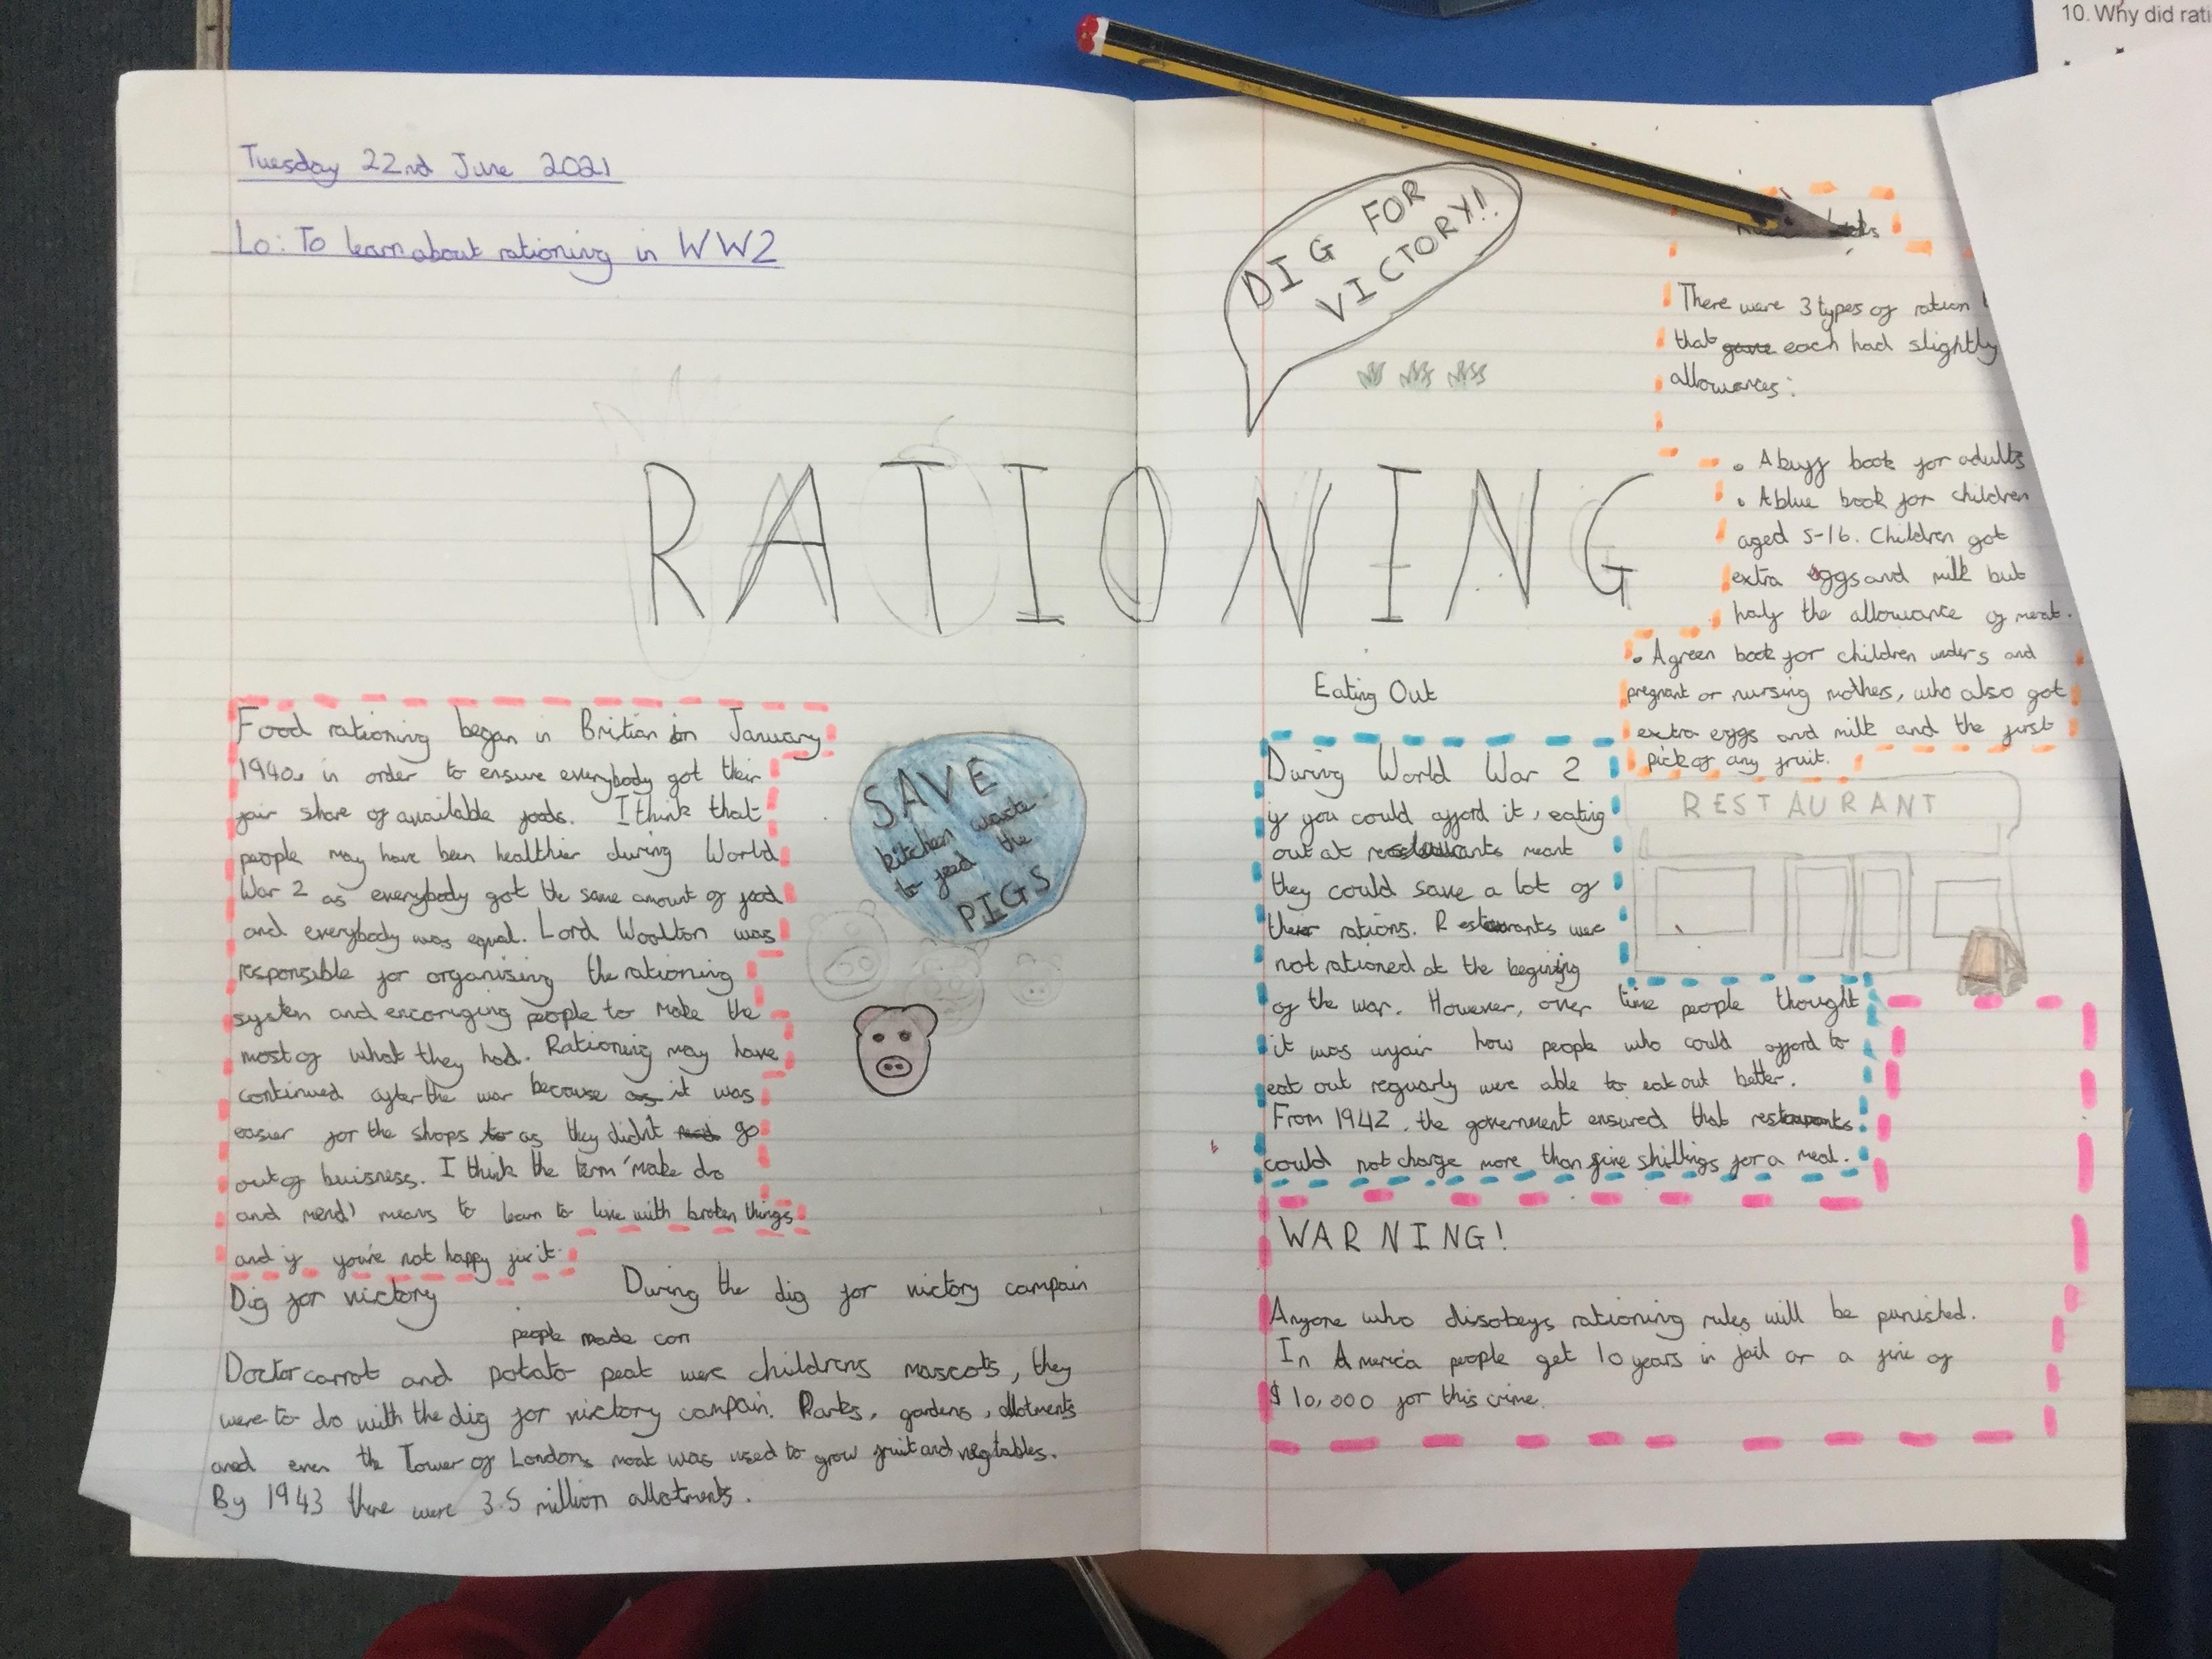 10. Why did rati
Tuesday 22nd June 2021
Lo: To learn about rationing in WW2
DIG FOR
VICTORY!!
RATIONING
Food rationing began in Britian in January
1940. in order to ensure everybody got their
fair share of available foods. I think that
people may have been healthier during World
War 2 as everybody got the same amount of food
and everybody was equal. Lord Woolton was
responsible for organising the rationing
system and encoriging people to make the
most of what they had. Rationing may have
continued after the war because as it was
easier for the shops to as they didn't go
out of buisness. I think the term 'make do
and mend' means to learn to live with broken things
and if you're not happy fix it.
SAVE
kitchen waste
to feed the
PIGS
Dig for victory
During the dig for victory campain
people made con
Doctor carrot and potato peat were childrens mascots, they
were to do with the dig for victory campain. Parks, gardens, allotments
and even the Tower of Londons moat was used to grow fruit and vegtables.
By 1943 there were 3.5 million allotments.
There were 3 types of ration
that gave each had slightly
allowances:
• A buff book for adults
• A blue book for children
aged 5-16. Children got
extra eggs and milk but
half the allowance of meat.
• A green book for children under 5 and
pregnant or nursing mothers, who also got
extra eggs and milk and the first
pick of any fruit.
RESTAURANT
Eating Out
During World War 2
if you could afford it, eating
out at restaurants meant
they could save a lot of
their rations. Restaurants were
not rationed at the begining
of the war. However, over time people thought
it was unfair how people who could afford to
eat out reguarly were able to eat out better.
From 1942, the government ensured that restaurants
could not charge more than five shillings for a meal.
WARNING!
Anyone who disobeys rationing rules will be punished.
In America people get 10 years in jail or a fine of
$10,000 for this crime.